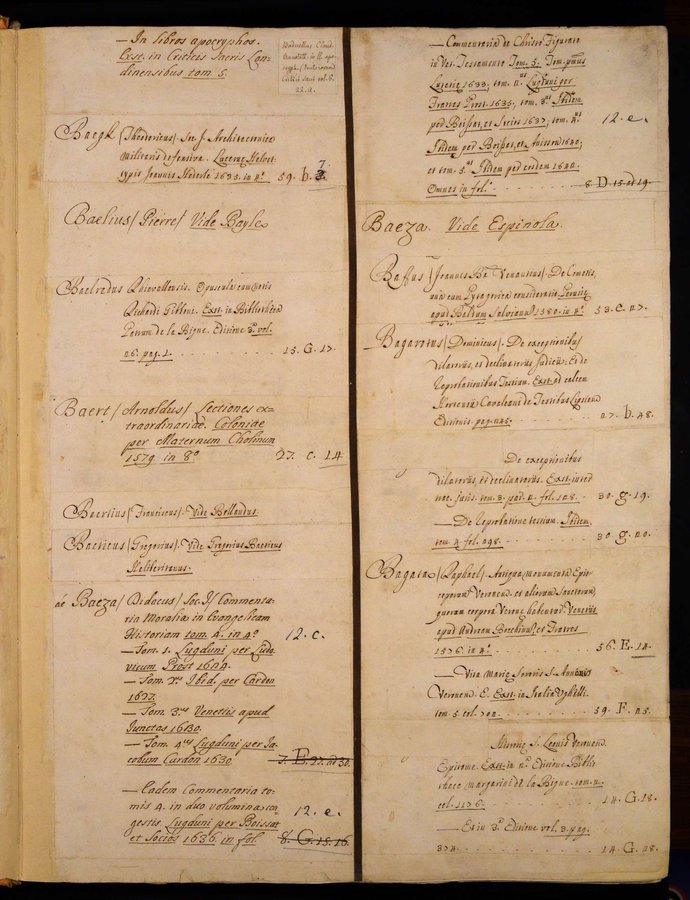 — In libros apocryphos.
Exst. in Criticis Sacris Lon=
dinensibus tom. 5.
Baduellus Claud.
Annotat. in ll. apo-
22.a.
Baegk /Theodericus/. Soc. J. Architectonica
Militaris defensiva. Lucernæ Helvet.
typis Joannis Hederle 1635. in 4º. 59. b. 7.
Baelius/ Pierre/ Vide Bayle
Baelredus Rhievallensis. Opuscula cum notis
Richardi Gibboni. Exst. in Bibliotheca
Patrum de la Bigne. Editione 3ª. vol.
pag. 1. 15. G. 17.
Baert/ Arnoldus/ Lectiones ex=
traordinariæ. Coloniae
per Maternum Cholinum
1579. in 8º 27. c. 14
Baertius/ Franciscus/. Vide Bollandus.
Baeticus /Gregorius/. Vide Gregorius Baeticus
Heliberitanus.
de Baeza/ Didacus/ Soc. J/ Commenta-
ria Moralia in Evangelicam
Historiam tom. 4. in 4º 12. c.
— Tom. 1. Lugduni per Ludo
vicum Prost
— Tom. 2us Ibid. per Cardon
— Tom. 3us Venetiis apud
Juntas 1630.
— Tom. 4us Lugduni per Ja
cobum Cardon 1630 7. E. 27. ad 30.
— Eadem Commentaria to-
mis 4. in duo volumina con
gestis. Lugduni per Boissat 12. e.
et Socios 1636. in fol. 8. G. 15. 16.
— Commentaria de Christo Figurato
in Vet. Testamento Tom. 5. Tom. pmus
1633; tom. 2us Lugduni per
Fratres Prost. 1635; tom. 3us Ibidem
per Boissat, et Socios 1637; tom. 4us 12. e.
Ibidem per Boissat, et Anisson 1640;
et tom. 5us Ibidem per eosdem 1640.
Omnes in fol. 8 D. 15 ad 19.
Baeza. Vide Espinola.
Baffus /Joannes Ba Venantius/. De Cometis,
Perusiæ
apud Baldum Salvianum 1580. in 4º. 53. c. 27.
Bagarotus/ Dominicus/. De exceptionibus
dilatoriis, et declinatoriis Judicii, Et de
Reprobationibus Testium. Exst. ad calcem
Cavalcani de Testibus Lipsiend
Editionis. pag. 245. 27. b. 48.
De exceptionibus
dilatoriis, et declinatoriis. Exst. inter
trac. juris. tom. 3. par. 2. fol. 128. 30. g. 19.
— De Reprobatione testium. Ibidem.
tom. 4. fol. 298. 30. g. 20.
Bagata /Raphael/. Antiqua monumenta Epis-
coporum Veronens. et aliorum Sanctorum,
quorum corpora Veronæ habentur. Venetiis
apud Andream Bocchinum, et Fratres
1576. in 4º. 56. E. 14.
— Vita Mariæ Sororis S. Annonis
Veronens. E. Exst. in Italia Ughelli.
tom. 5 col. 59. F. 25.
S. Zenonis Veronens.
Epitome. Exst. in 2ª. Editione Biblio-
thecæ margarini de la Bigne. tom. 2.
col. 1176. 14. G. 18.
— Et in 3ª. Editione vol. 3. pag.
374. 14. G. 28.